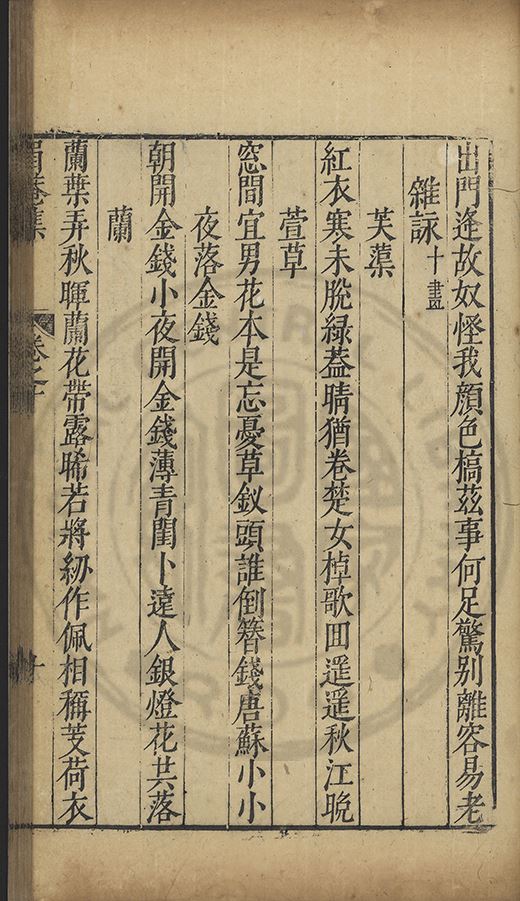 出門逢故奴怪我顏色槁茲事何足驚别離容易老
雜詠十畫
芙蕖
紅衣寒未脫綠蓋晴猶卷楚女棹歌囬遥遥秋江晚
萱草
窓間宜男花本是忘憂草釵頭誰倒簪錢唐蘇小小
夜落金錢
朝開金錢小夜開金錢薄青閨卜遠人銀燈花共落
蘭
蘭葉弄秋暉蘭花帶露晞若將紉作佩相稱芰荷衣
菴集
卷之